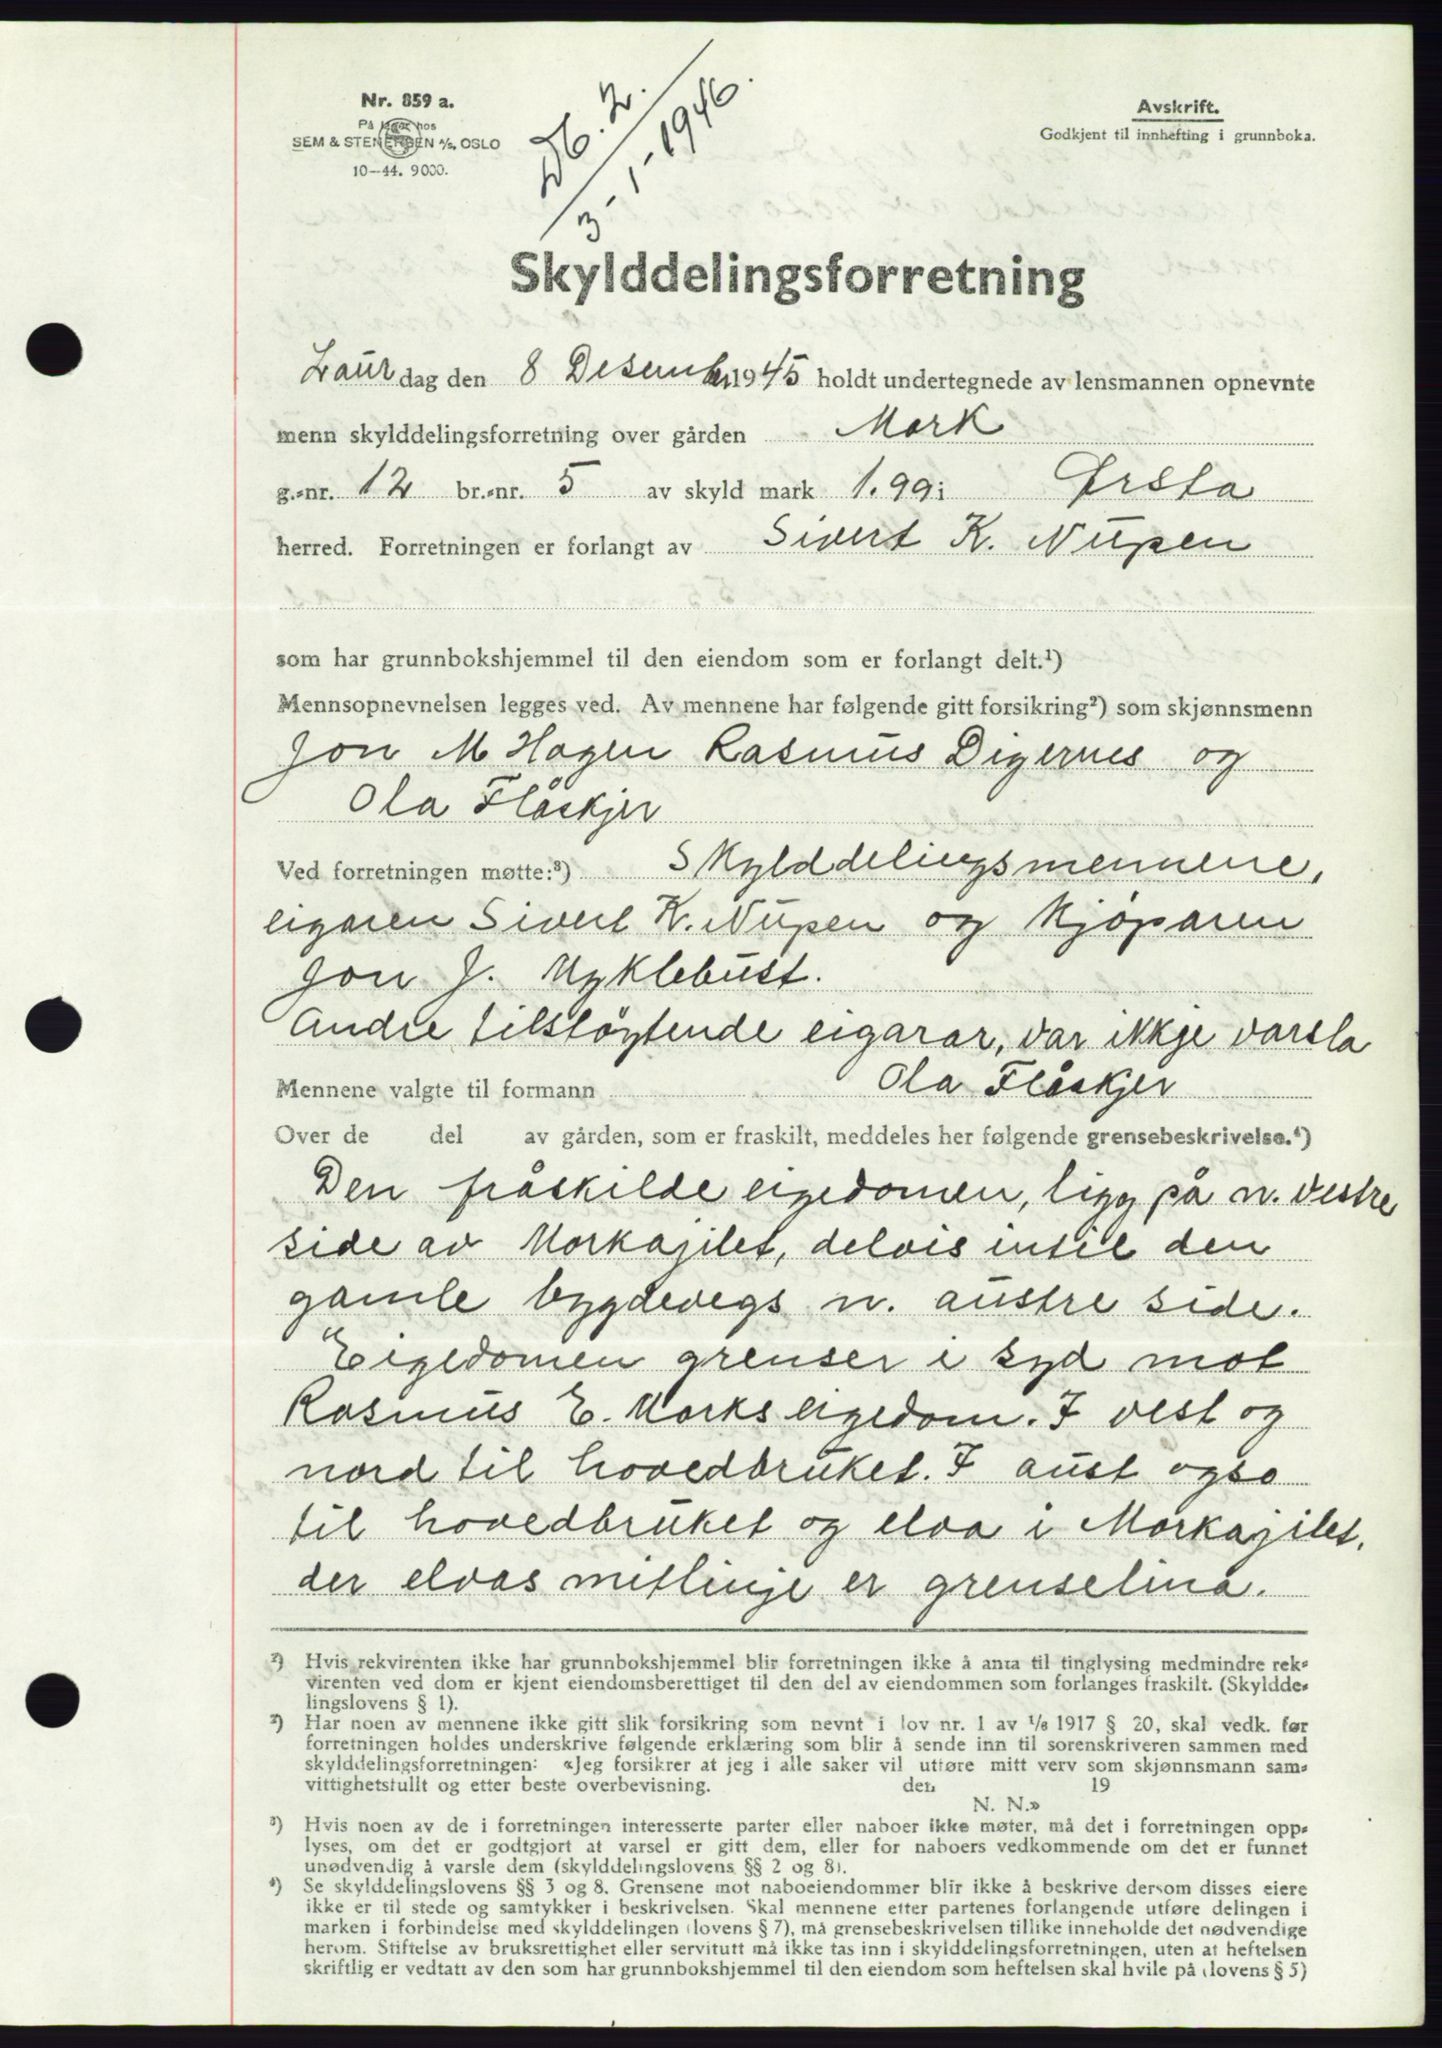 Nr. 859 a.
På lager hos
SEM & STENERSEN A/S, OSLO
10—44. 9000.
Db. 2.
3-1-1946.
Avskrift.
Godkjent til innhefting i grunnboka.
Skylddelingsforretning
Laurdag den 8 Desember 1945 holdt undertegnede av lensmannen opnevnte
menn skylddelingsforretning over gården Mork
g.-nr. 12 br.-nr. 5 av skyld mark 1.99 i Ørsta
herred. Forretningen er forlangt av Sivert K. Nupen
som har grunnbokshjemmel til den eiendom som er forlangt delt.¹)
Mennsopnevnelsen legges ved. Av mennene har følgende gitt forsikring²) som skjønnsmenn
Jon M Hagen Rasmus Digernes og
Ola Flåskjer
Ved forretningen møtte:³) Skylddelingsmennene,
eigaren Sivert K. Nupen og kjöparen
Jon J. Myklebust.
Andre tilstöytende eigarar, var ikkje varsla
Mennene valgte til formann Ola Flåskjer
Over de del av gården, som er fraskilt, meddeles her følgende grensebeskrivelse.⁴)
Den fråskilde eigedomen, ligg på n. vestre
side av Morkagilet, delvis intil den
gamle bygdevegs n. austre side.
Eigedomen grenser i syd mot
Rasmus E. Morks eigedom. I vest og
nord til hovedbruket. I aust ogso
til hovedbruket og elva i Morkagilet,
der elvas mitlinje er grenselina.
¹) Hvis rekvirenten ikke har grunnbokshjemmel blir forretningen ikke å anta til tinglysing medmindre rek-
virenten ved dom er kjent eiendomsberettiget til den del av eiendommen som forlanges fraskilt. (Skyldde-
lingslovens § 1).
²) Har noen av mennene ikke gitt slik forsikring som nevnt i lov nr. 1 av 1/6 1917 § 20, skal vedk. før
forretningen holdes underskrive følgende erklæring som blir å sende inn til sorenskriveren sammen med
skylddelingsforretningen: «Jeg forsikrer at jeg i alle saker vil utføre mitt verv som skjønnsmann sam-
vittighetsfullt og etter beste overbevisning. den 19
N. N.»
³) Hvis noen av de i forretningen interesserte parter eller naboer ikke møter, må det i forretningen opp-
lyses, om det er godtgjort at varsel er gitt dem, eller for naboers vedkommende om det er funnet
unødvendig å varsle dem (skylddelingslovens §§ 2 og 8).
⁴) Se skylddelingslovens §§ 3 og 8. Grensene mot naboeiendommer blir ikke å beskrive dersom disses eiere
ikke er til stede og samtykker i beskrivelsen. Skal mennene etter partenes forlangende utføre delingen i
marken i forbindelse med skylddelingen (lovens § 7), må grensebeskrivelsen tillike inneholde det nødvendige
herom. Stiftelse av bruksrettighet eller servitutt må ikke tas inn i skylddelingsforretningen, uten at heftelsen
skriftlig er vedtatt av den som har grunnbokshjemmel til den eiendom som heftelsen skal hvile på (lovens § 5)